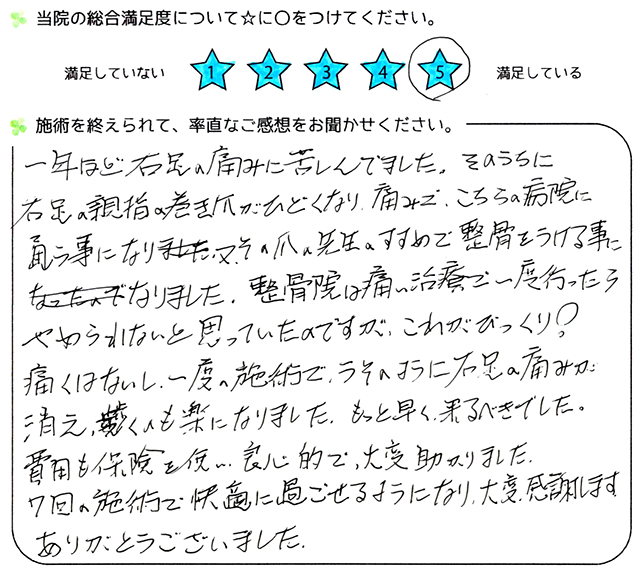 当院の総合満足度について☆に○をつけてください。
満足していない 1 2 3 4 5 満足している
施術を終えられて、率直なご感想をお聞かせください。
一年ほど右足の痛みに苦しんでました。そのうちに
右足の親指の巻き爪がひどくなり、痛みで、こちらの病院に
通う事になりました。又、その爪の先生のすすめで整骨をうける事に
なったのでなりました。整骨院は痛い治療で一度行ったら
やめられないと思っていたのですが、これがびっくり?
痛くはないし、一度の施術で、うそのように右足の痛みが
消え、歩くのも楽になりました。もっと早く、来るべきでした。
費用も保険を使い、良心的で、大変助かりました。
7回の施術で快適に過ごせるようになり、大変、感謝します
ありがとうございました。